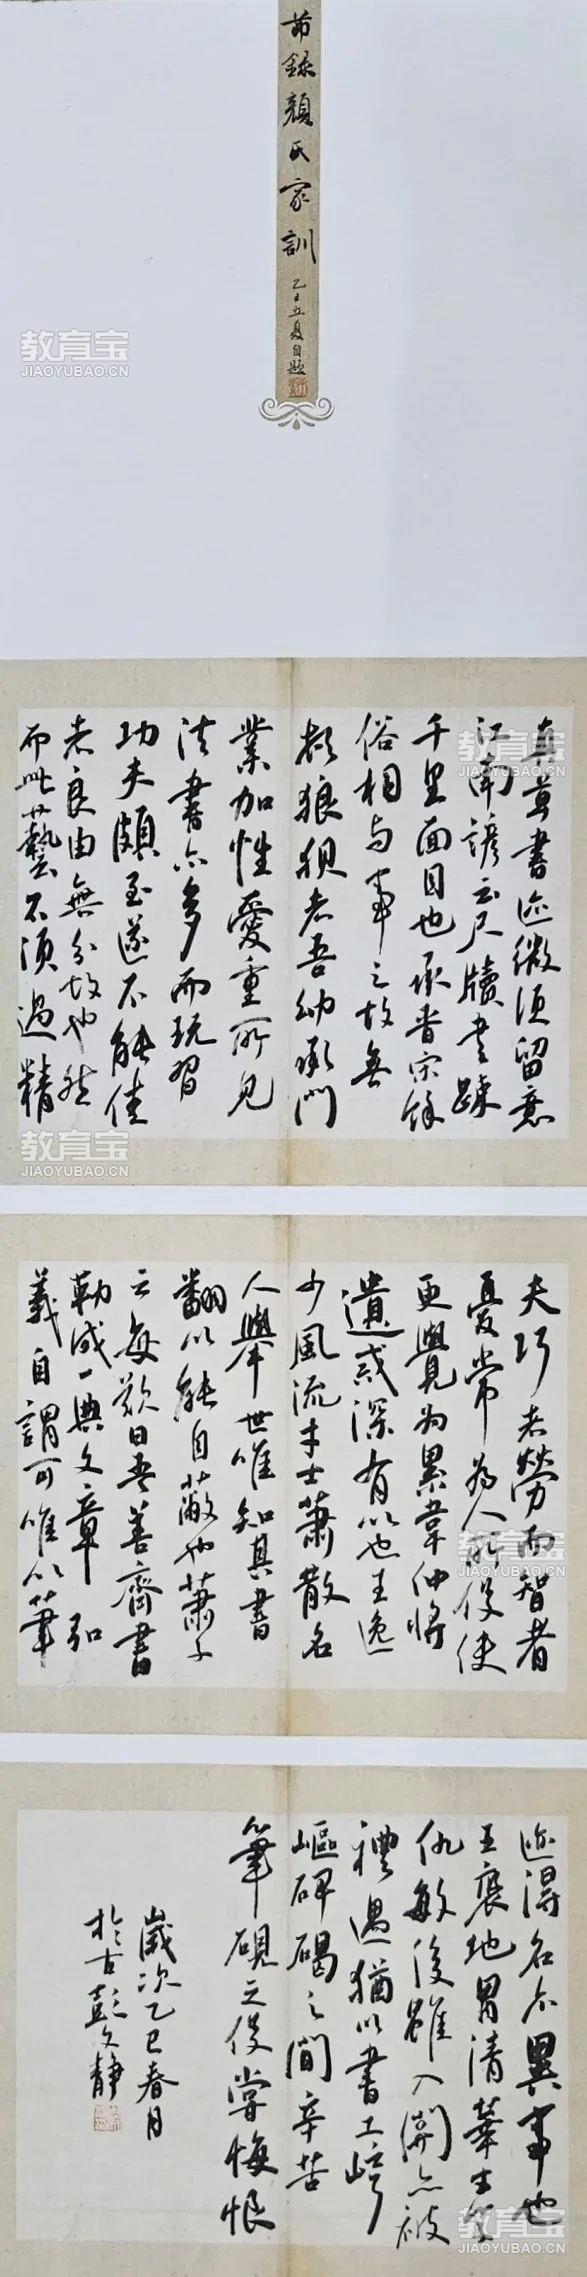 節録顏氏家訓
乙巳立夏自題
教育宝
JIAOYUBAO.CN
教育宝
JIAOYUBAO.CN
真草書迹微須留意
江南諺云尺牘書疎
千里面目也承晉宋餘
俗相与事之故無
頓狼狽者吾幼承門
業加性愛重所見
法書亦多而玩習
功夫頗至遂不能佳
者良由無分故也然
而此藝不須過精
教育宝
JIAOYUBAO.CN
教育宝
JIAOYUBAO.CN
夫巧者勞而智者
憂常為人所役使
更覺為累韋仲將
遺戒深有以也王逸
少風流才士蕭散名
人舉世唯知其書
翻以能自蔽也蕭子
云每歎曰吾著齊書
勒成一典文章弘
義自謂可唯以筆
教育宝
JIAOYUBAO.CN
教育宝
JIAOYUBAO.CN
迹得名亦異事也
王褒地胄清華才學
优敏後雖入關亦被
禮遇猶以書工崎
嶇碑碣之間辛苦
筆硯之役嘗悔恨
歲次乙巳春月
於古彭文靜
教育宝
JIAOYUBAO.CN
教育宝
JIAOYUBAO.CN